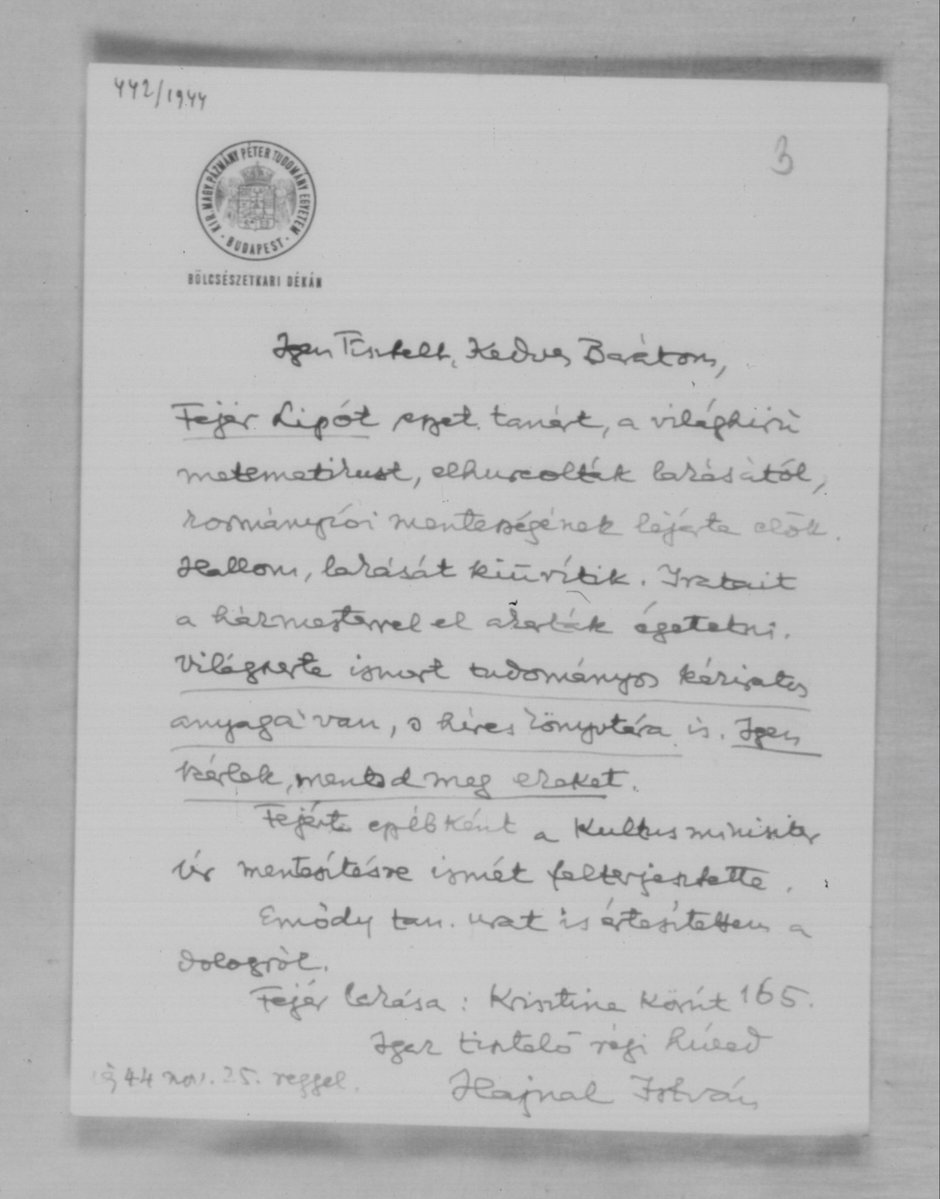 442/1944
3
KIR. MAGY. PÁZMÁNY PÉTER TUDOMÁNY EGYETEM
· BUDAPEST ·
BÖLCSÉSZETKARI DÉKÁN
Igen Tisztelt, Kedves Barátom,
Fejér Lipót egyet. tanárt, a világhirü
matematikust, elhurcolták lakásától,
kormányzói mentességének lejárta előtt.
Hallom, lakását kiürítik. Iratait
a házmesterrel el akarták égetetni.
Világszerte ismert tudományos kéziratos
anyaga van, s híres könyvtára is. Igen
kérlek, mentsd meg ezeket.
Fejért egyébként a Kultusminiszter
úr mentesítésre ismét felterjesztette.
Emődy tan. urat is értesítettem a
dologról.
Fejér lakása: Krisztina Körút 165.
Igaz tisztelő régi híved
44 nov. 25. reggel.
Hajnal István